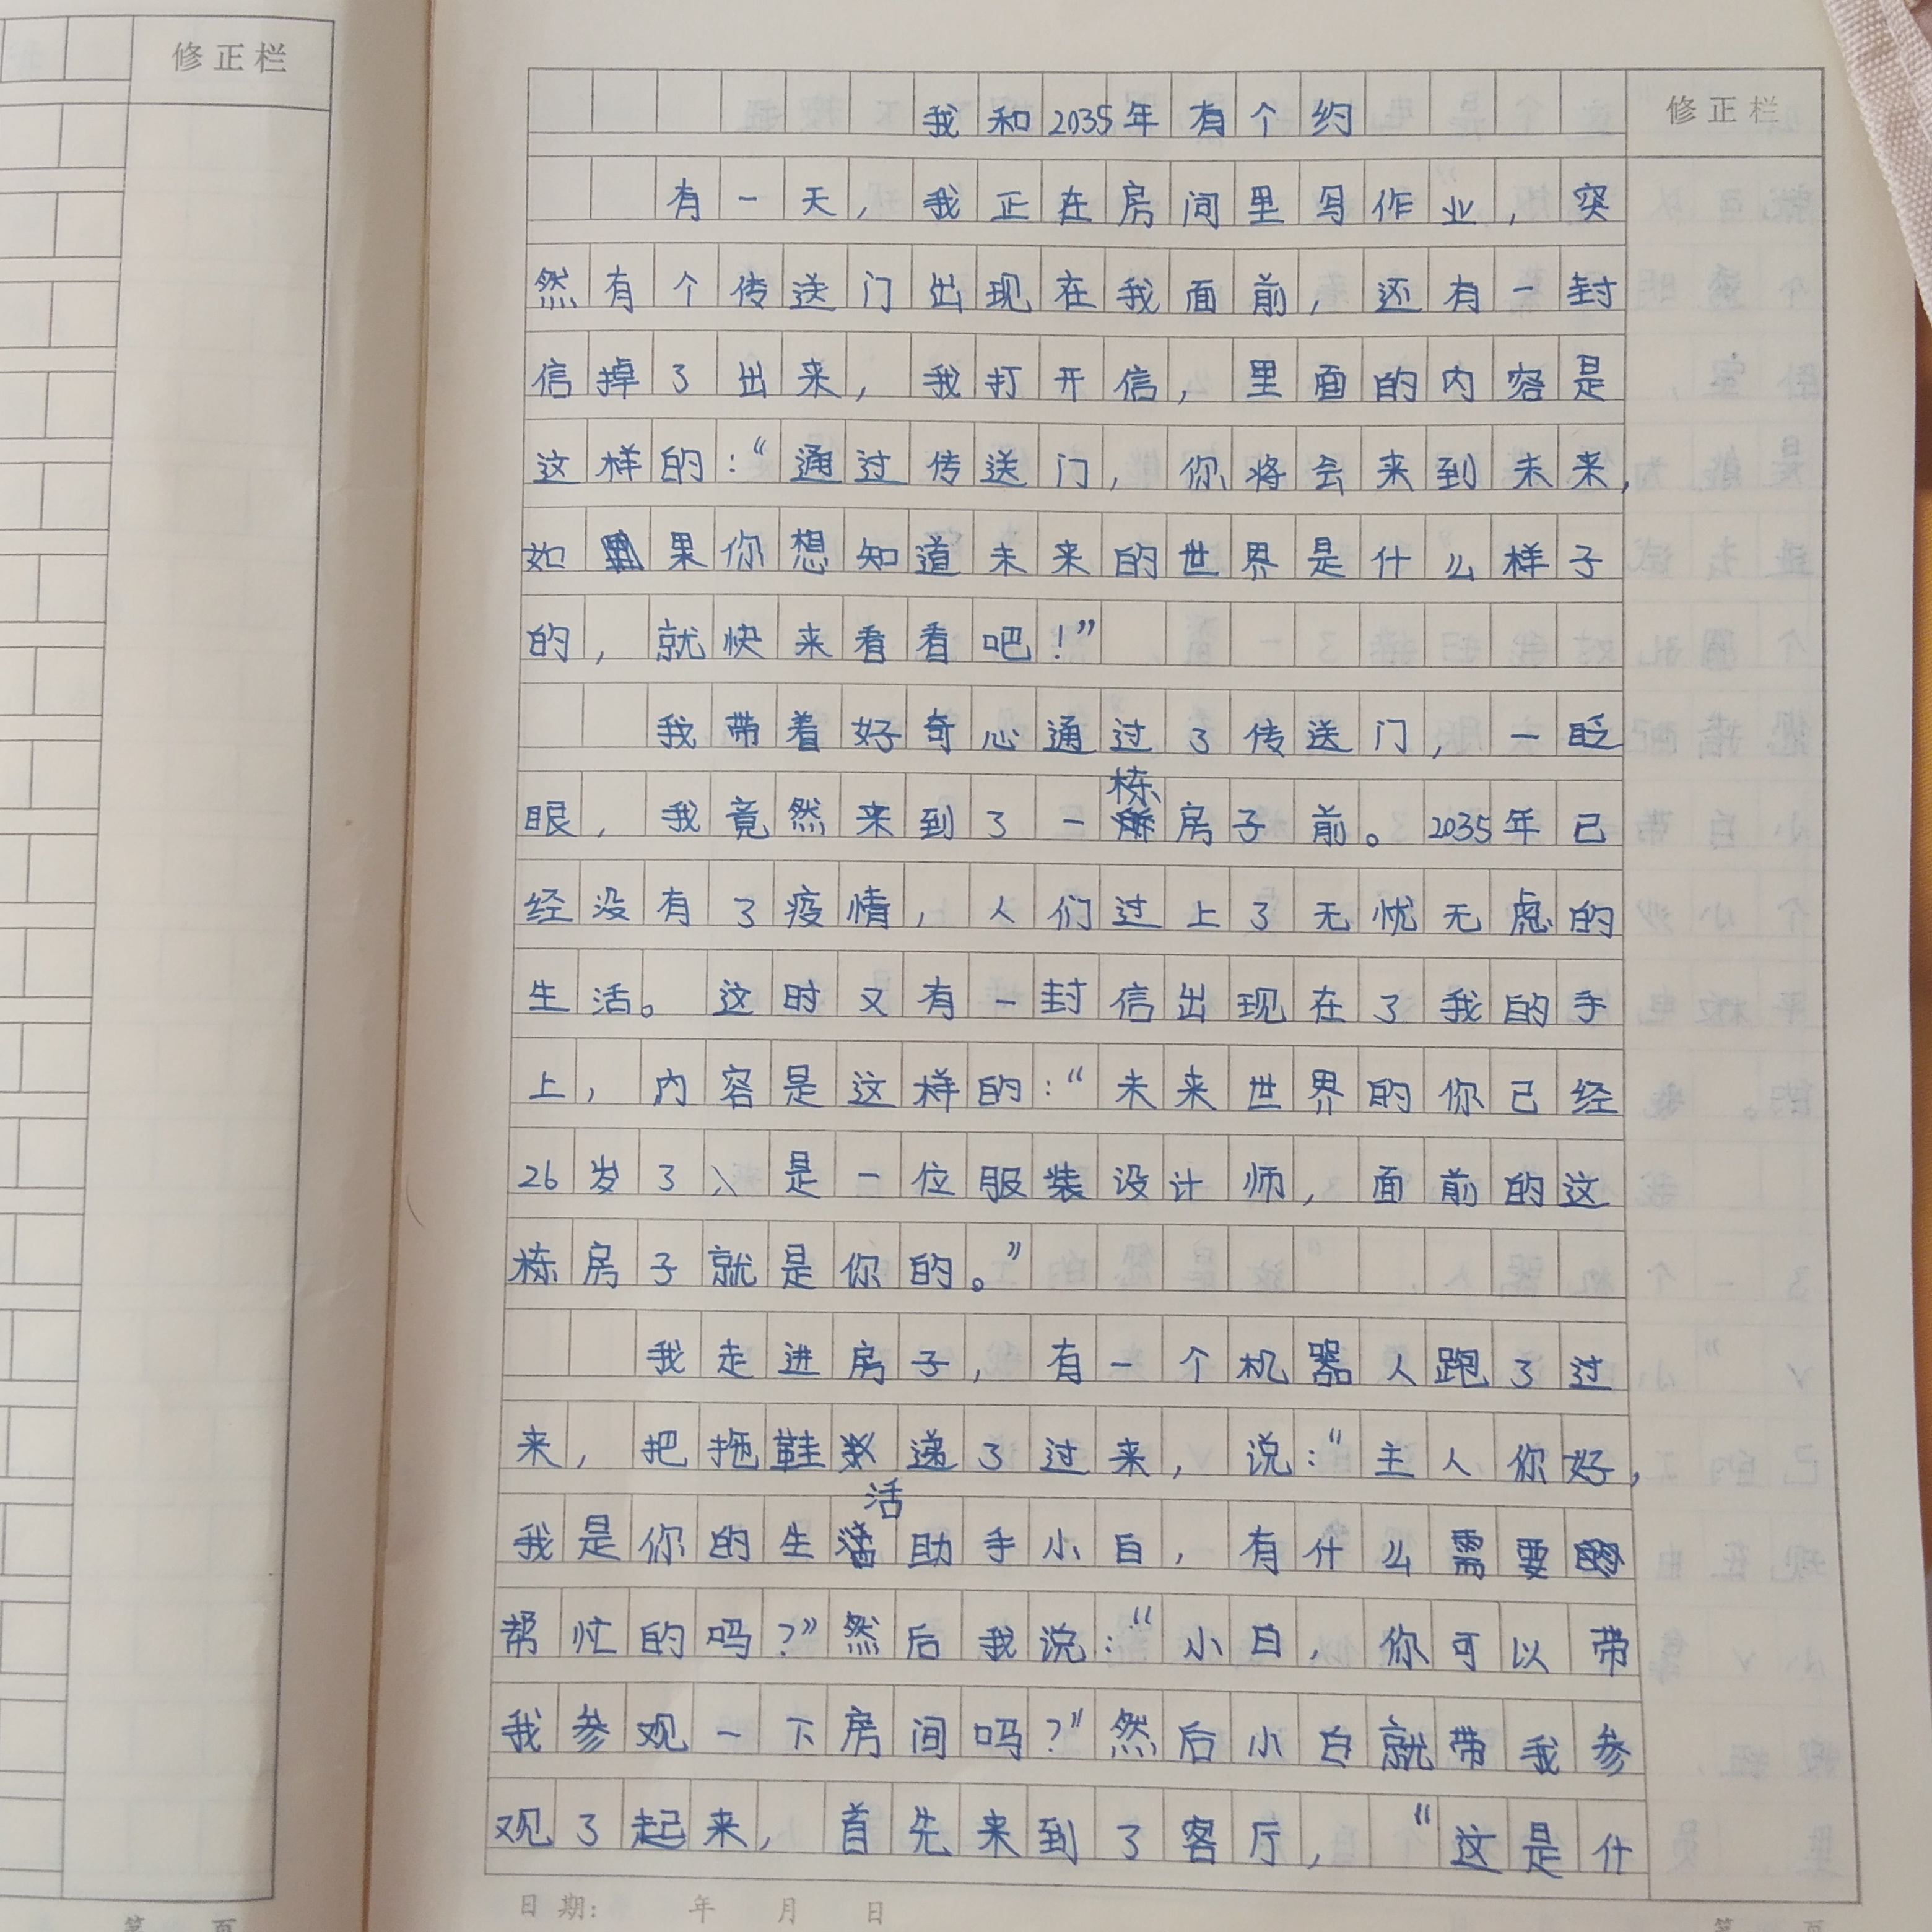 修正栏
我和2035年有个约
修正栏
有一天，我正在房间里写作业，突
然有个传送门出现在我面前，还有一封
信掉了出来，我打开信，里面的内容是
这样的：“通过传送门，你将会来到未来，
如果你想知道未来的世界是什么样子
的，就快来看看吧！”
我带着好奇心通过了传送门，一眨
眼，我竟然来到了一栋房子前。2035年已
经没有了疫情，人们过上了无忧无虑的
生活。这时又有一封信出现在了我的手
上，内容是这样的：“未来世界的你已经
26岁了、是一位服装设计师，面前的这
栋房子就是你的。”
我走进房子，有一个机器人跑了过
来，把拖鞋递了过来，说：“主人你好，
我是你的生活助手小白，有什么需要
帮忙的吗？”然后我说：“小白，你可以带
我参观一下房间吗？”然后小白就带我参
观了起来，首先来到了客厅，“这是什
日期： 年 月 日
第 页
第 页